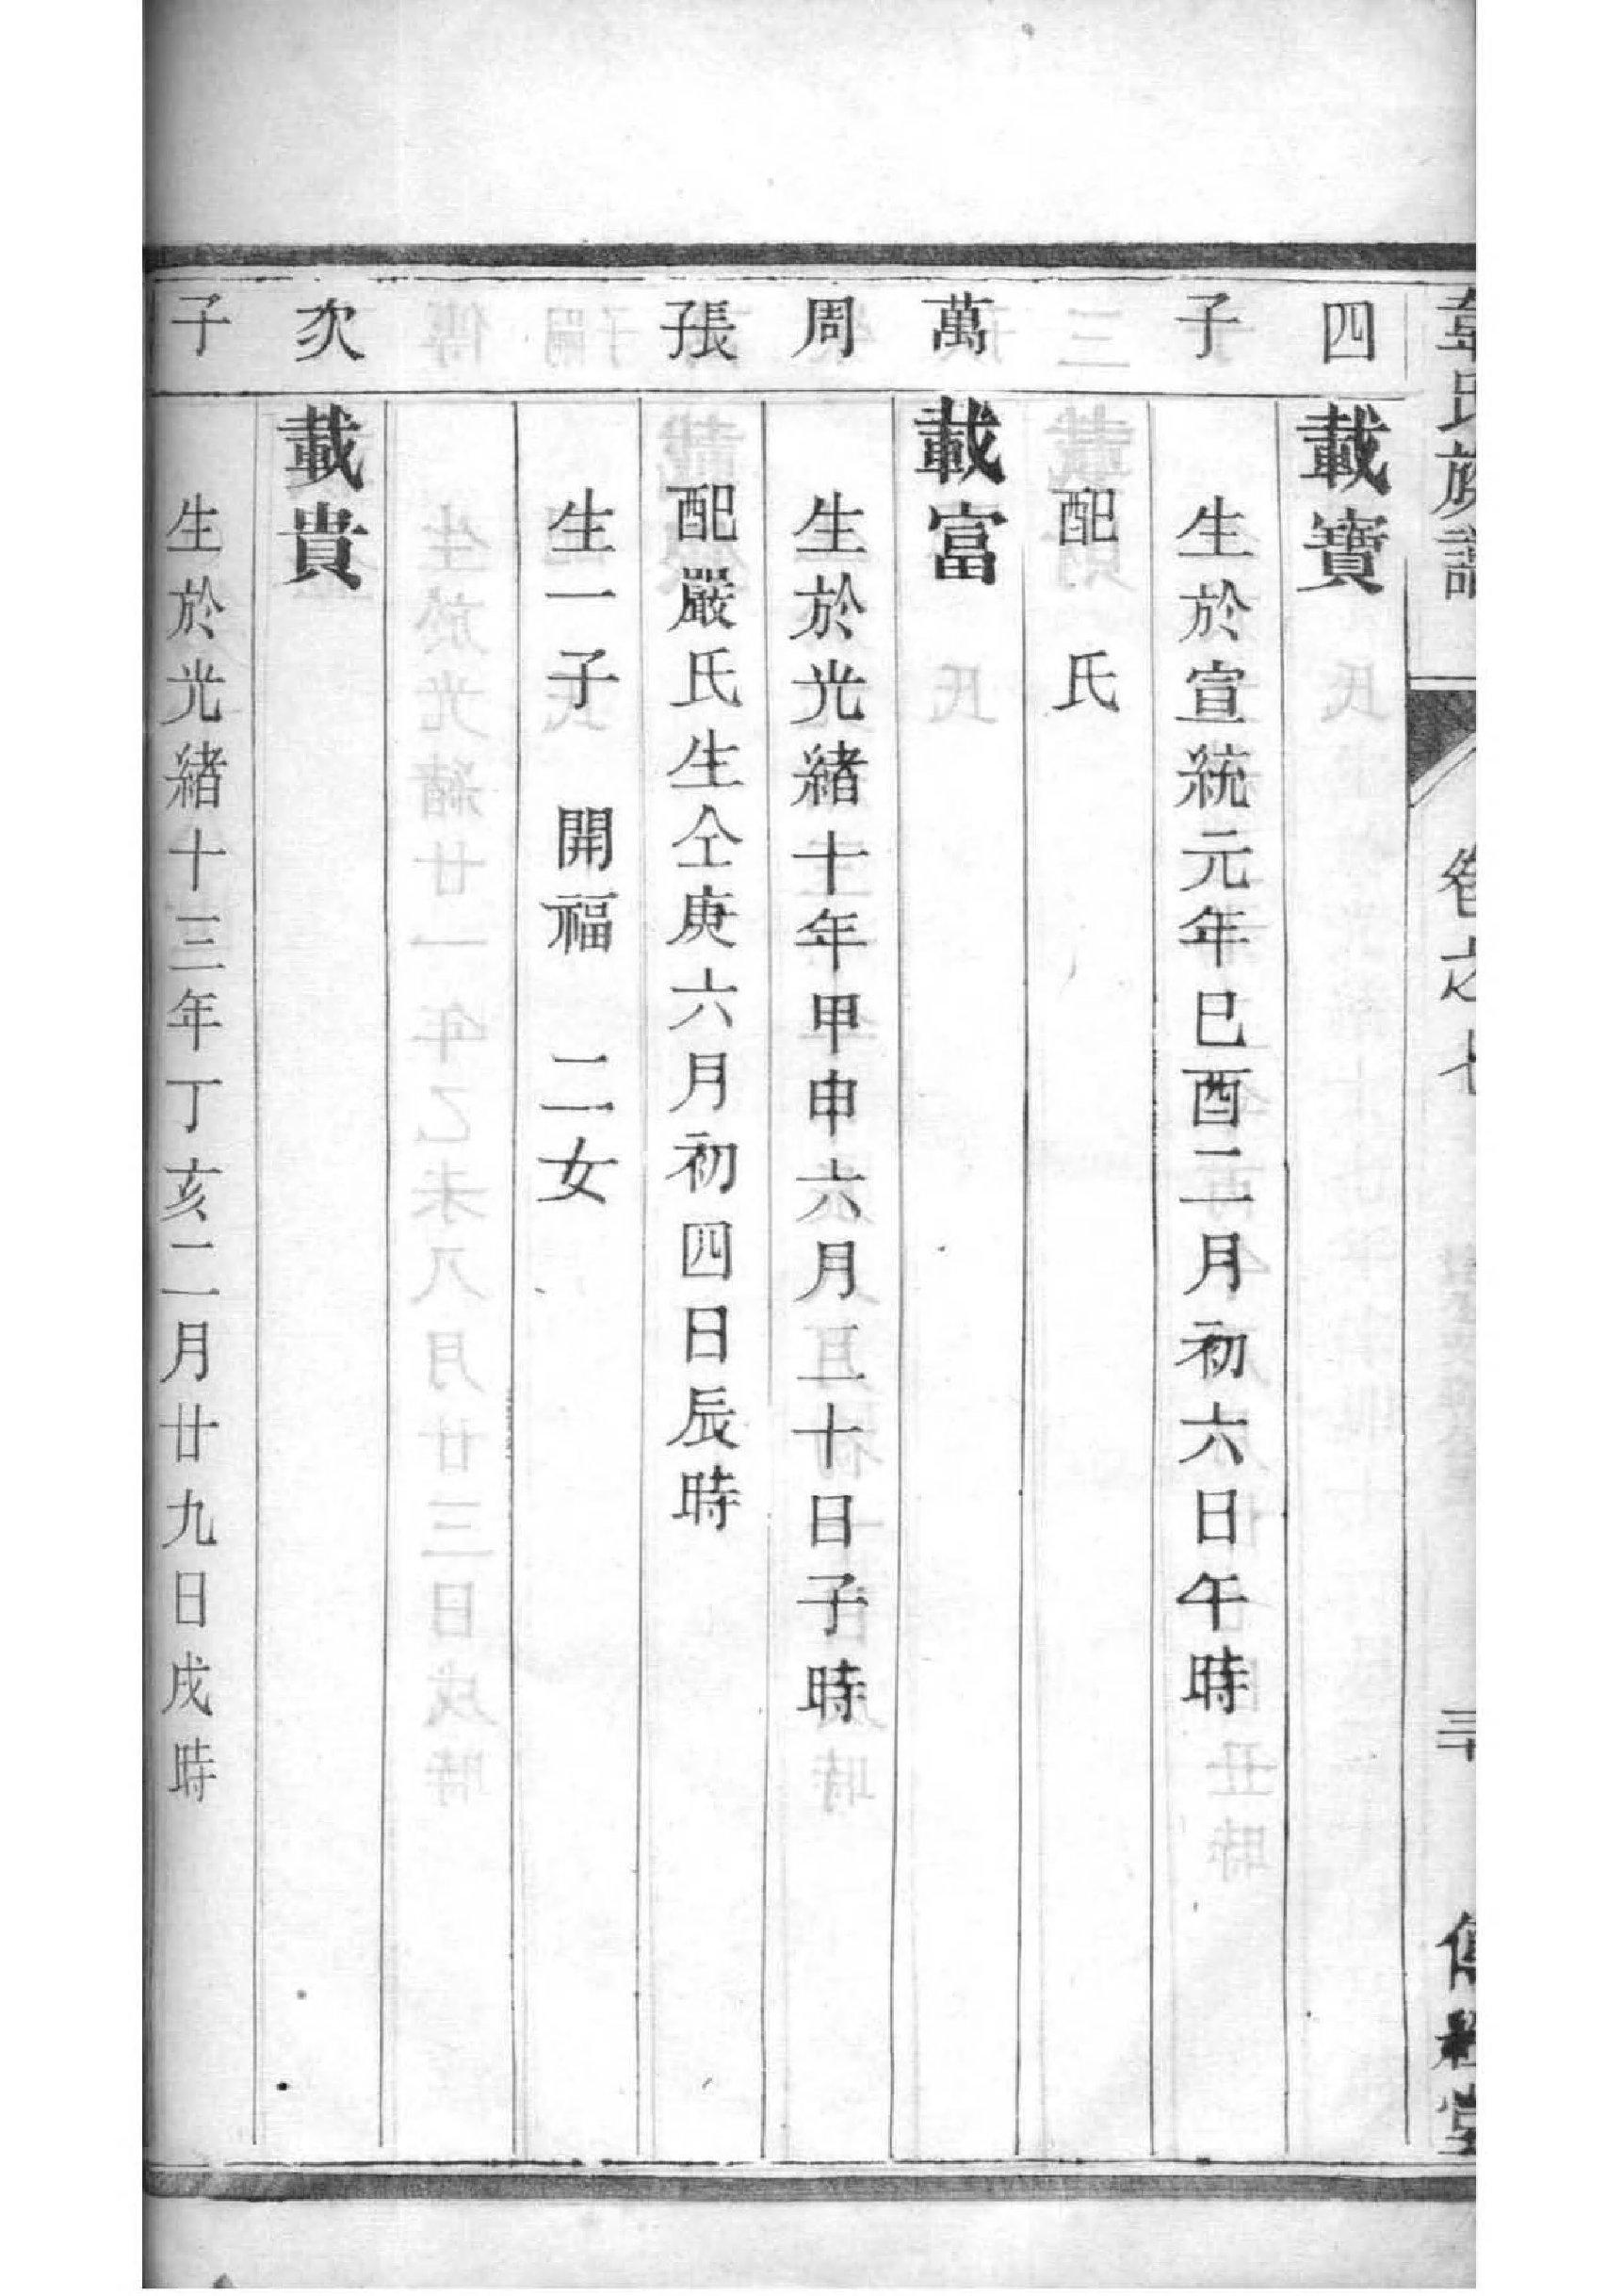 韋氏族譜 卷之七 三十
四 載寶
子 生於宣統元年巳酉二月初六日午時
配 氏
萬 載富
周 生於光緒十年甲申六月三十日子時
張子 配嚴氏生仝庚六月初四日辰時
生一子 開福 二女
次 載貴
子 生於光緒十三年丁亥二月廿九日戌時